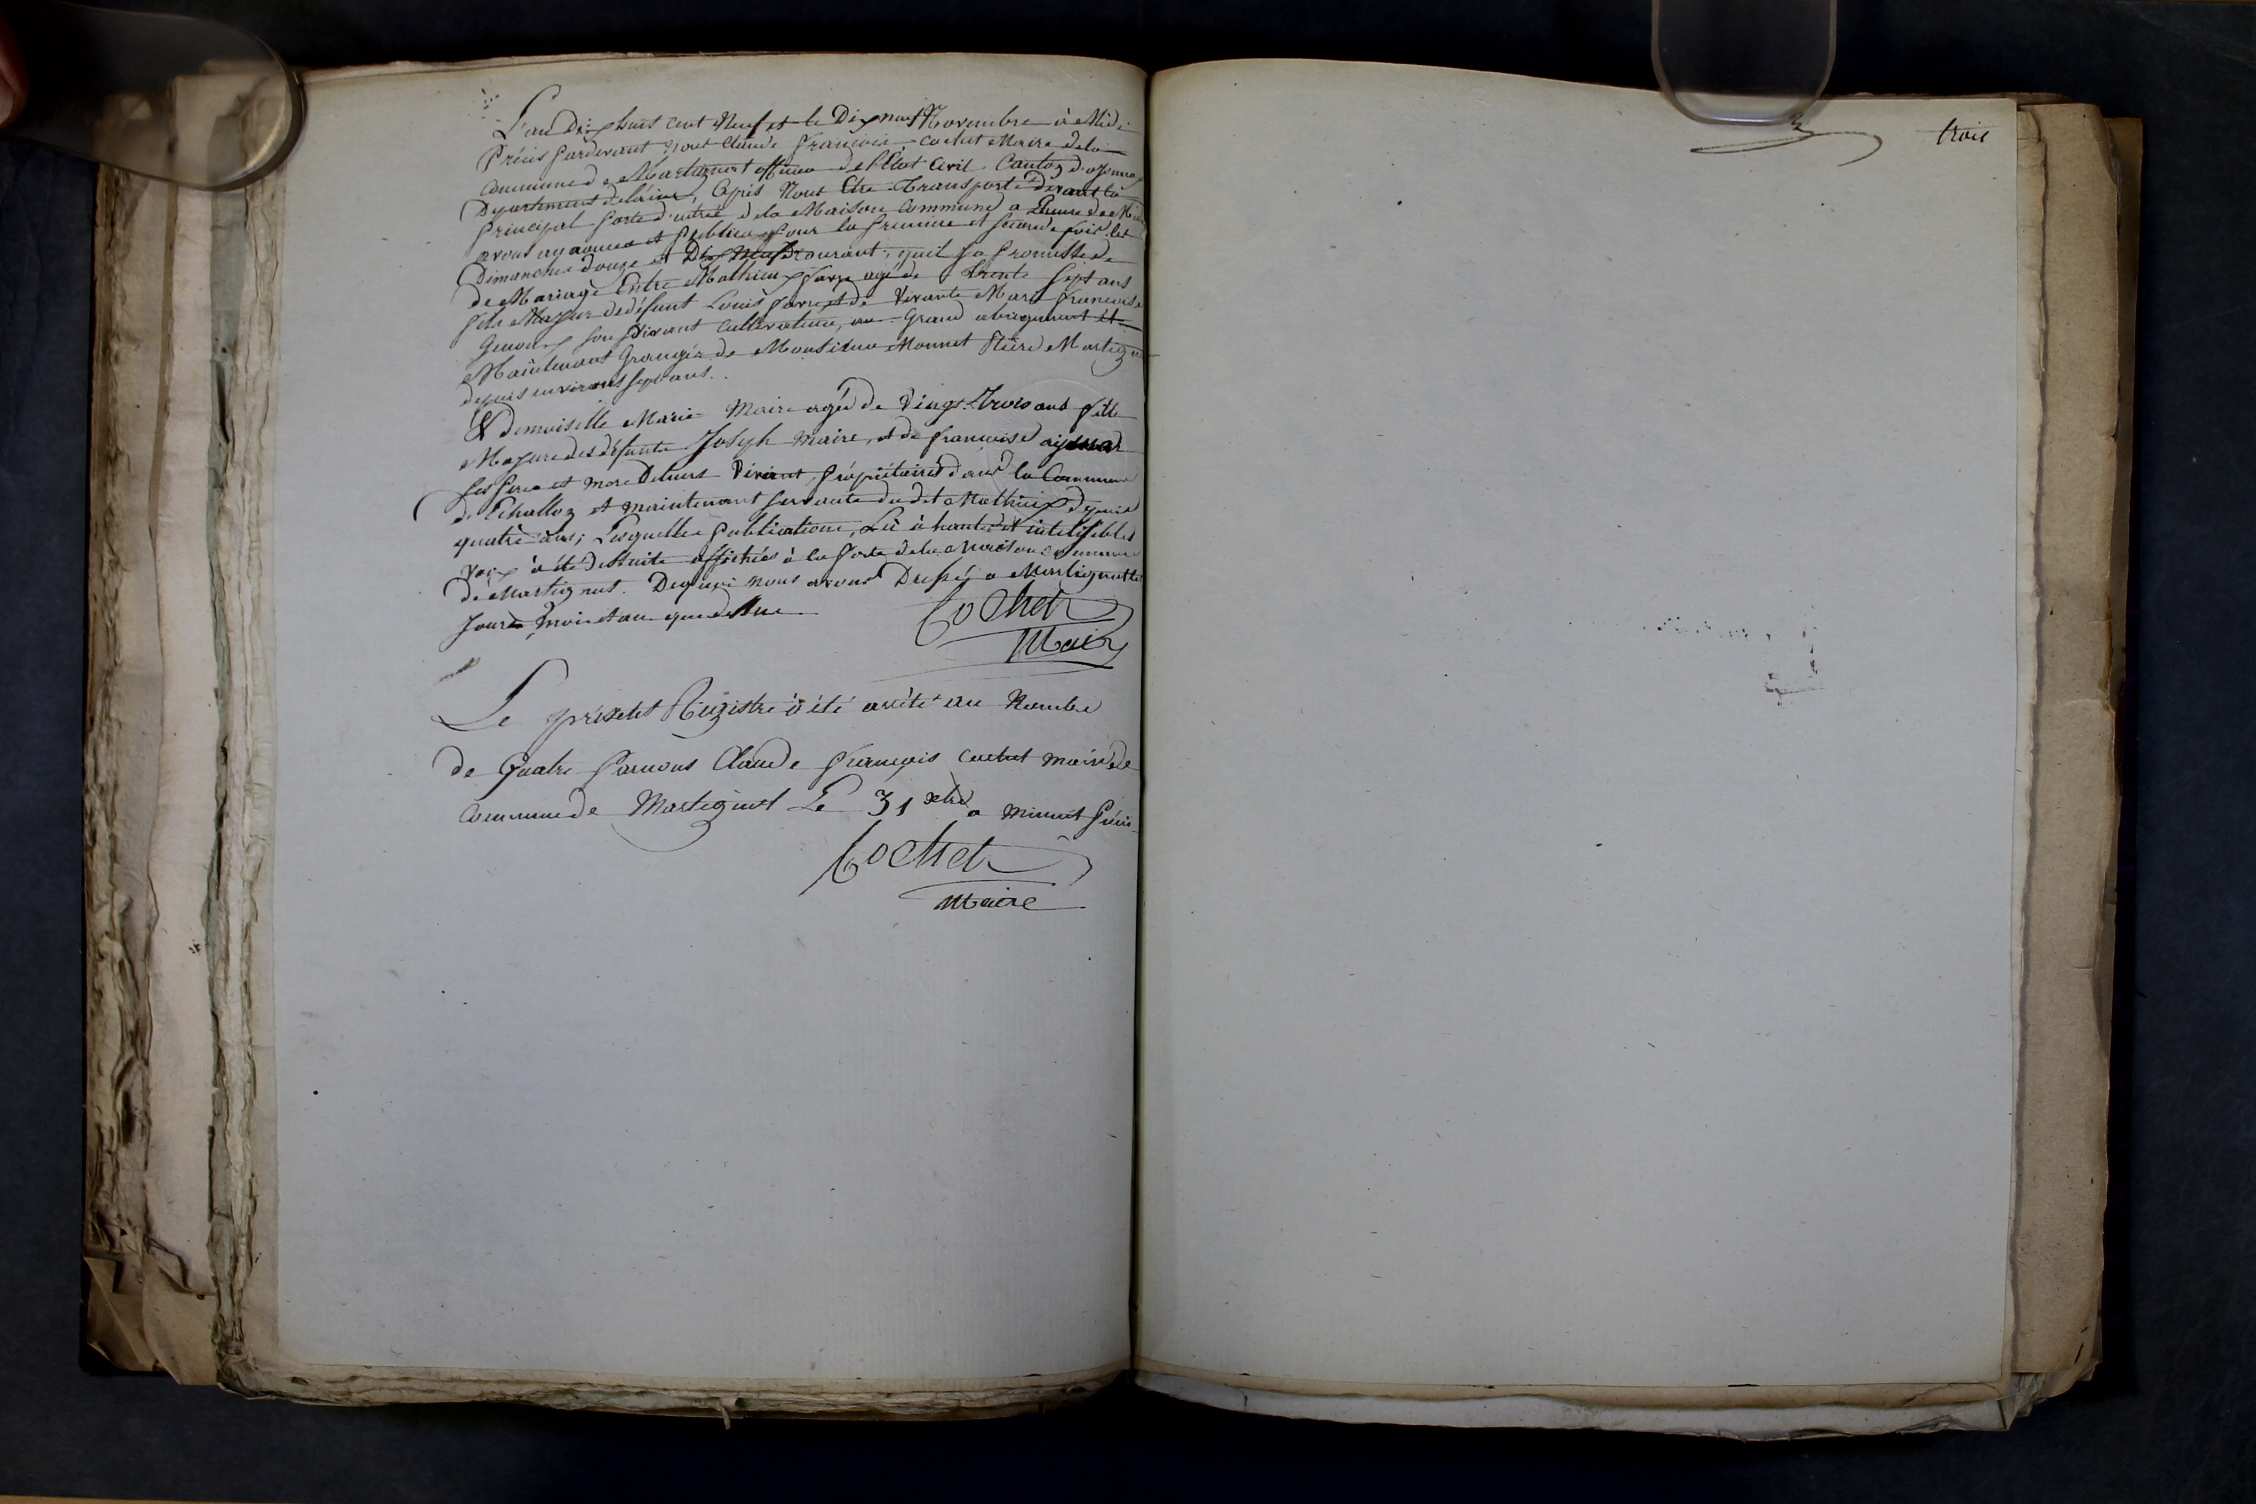 L'an Dix huit cent Neuf et le Dix neuf Novembre à Midi
Précis Pardevant Nous Claude François Cochet Maire de la
Commune de Martignat officier de l'Etat Civil Canton d'oyonnax
Département de l'ain, Après Nous Etre Transporté Devant la
Principal Porte d'entrée de la Maison Commune a L'heure de Midi
avons annoncé et Publiée Pour la Premiere et Seconde fois les
Dimanche douze et Dix Neuf courant, quil y a Promesse de
de Mariage Entre Mathieu favre agé de Trente Sept ans
fils Majeur de défunt Louis favre et de Vivante Marie françoise
son Vivant Cultivateur, au Grand et
Maintenant Granger de Monsieur Monnet Martignat
depuis environs Sept ans.
& demoiselle Marie Maire agée de Vingt-Trois ans fille
Majeure des défunts Joseph Maire, et de françoise
Ses Pere et Mere Vivant Propriétaires dans la Commune
d'Echallon et maintenant Servante du dit Mathieu depuis
quatre ans; Lesquelles Publications, Lu à haute et intelisibles
voix à été de Suite affichées à la Porte de la Maison Commune
de Martignat. De quoi nous avons Dressé a Martignat les
Jours, mois et an que dessus
Cochet
Maire
Le présent Régistre à été arrêté au Nombre
de Quatre Par nous Claude François Cochet maire de
Commune de Martignat Le 31 xbre a Minuit Précis
Cochet
Maire
trois